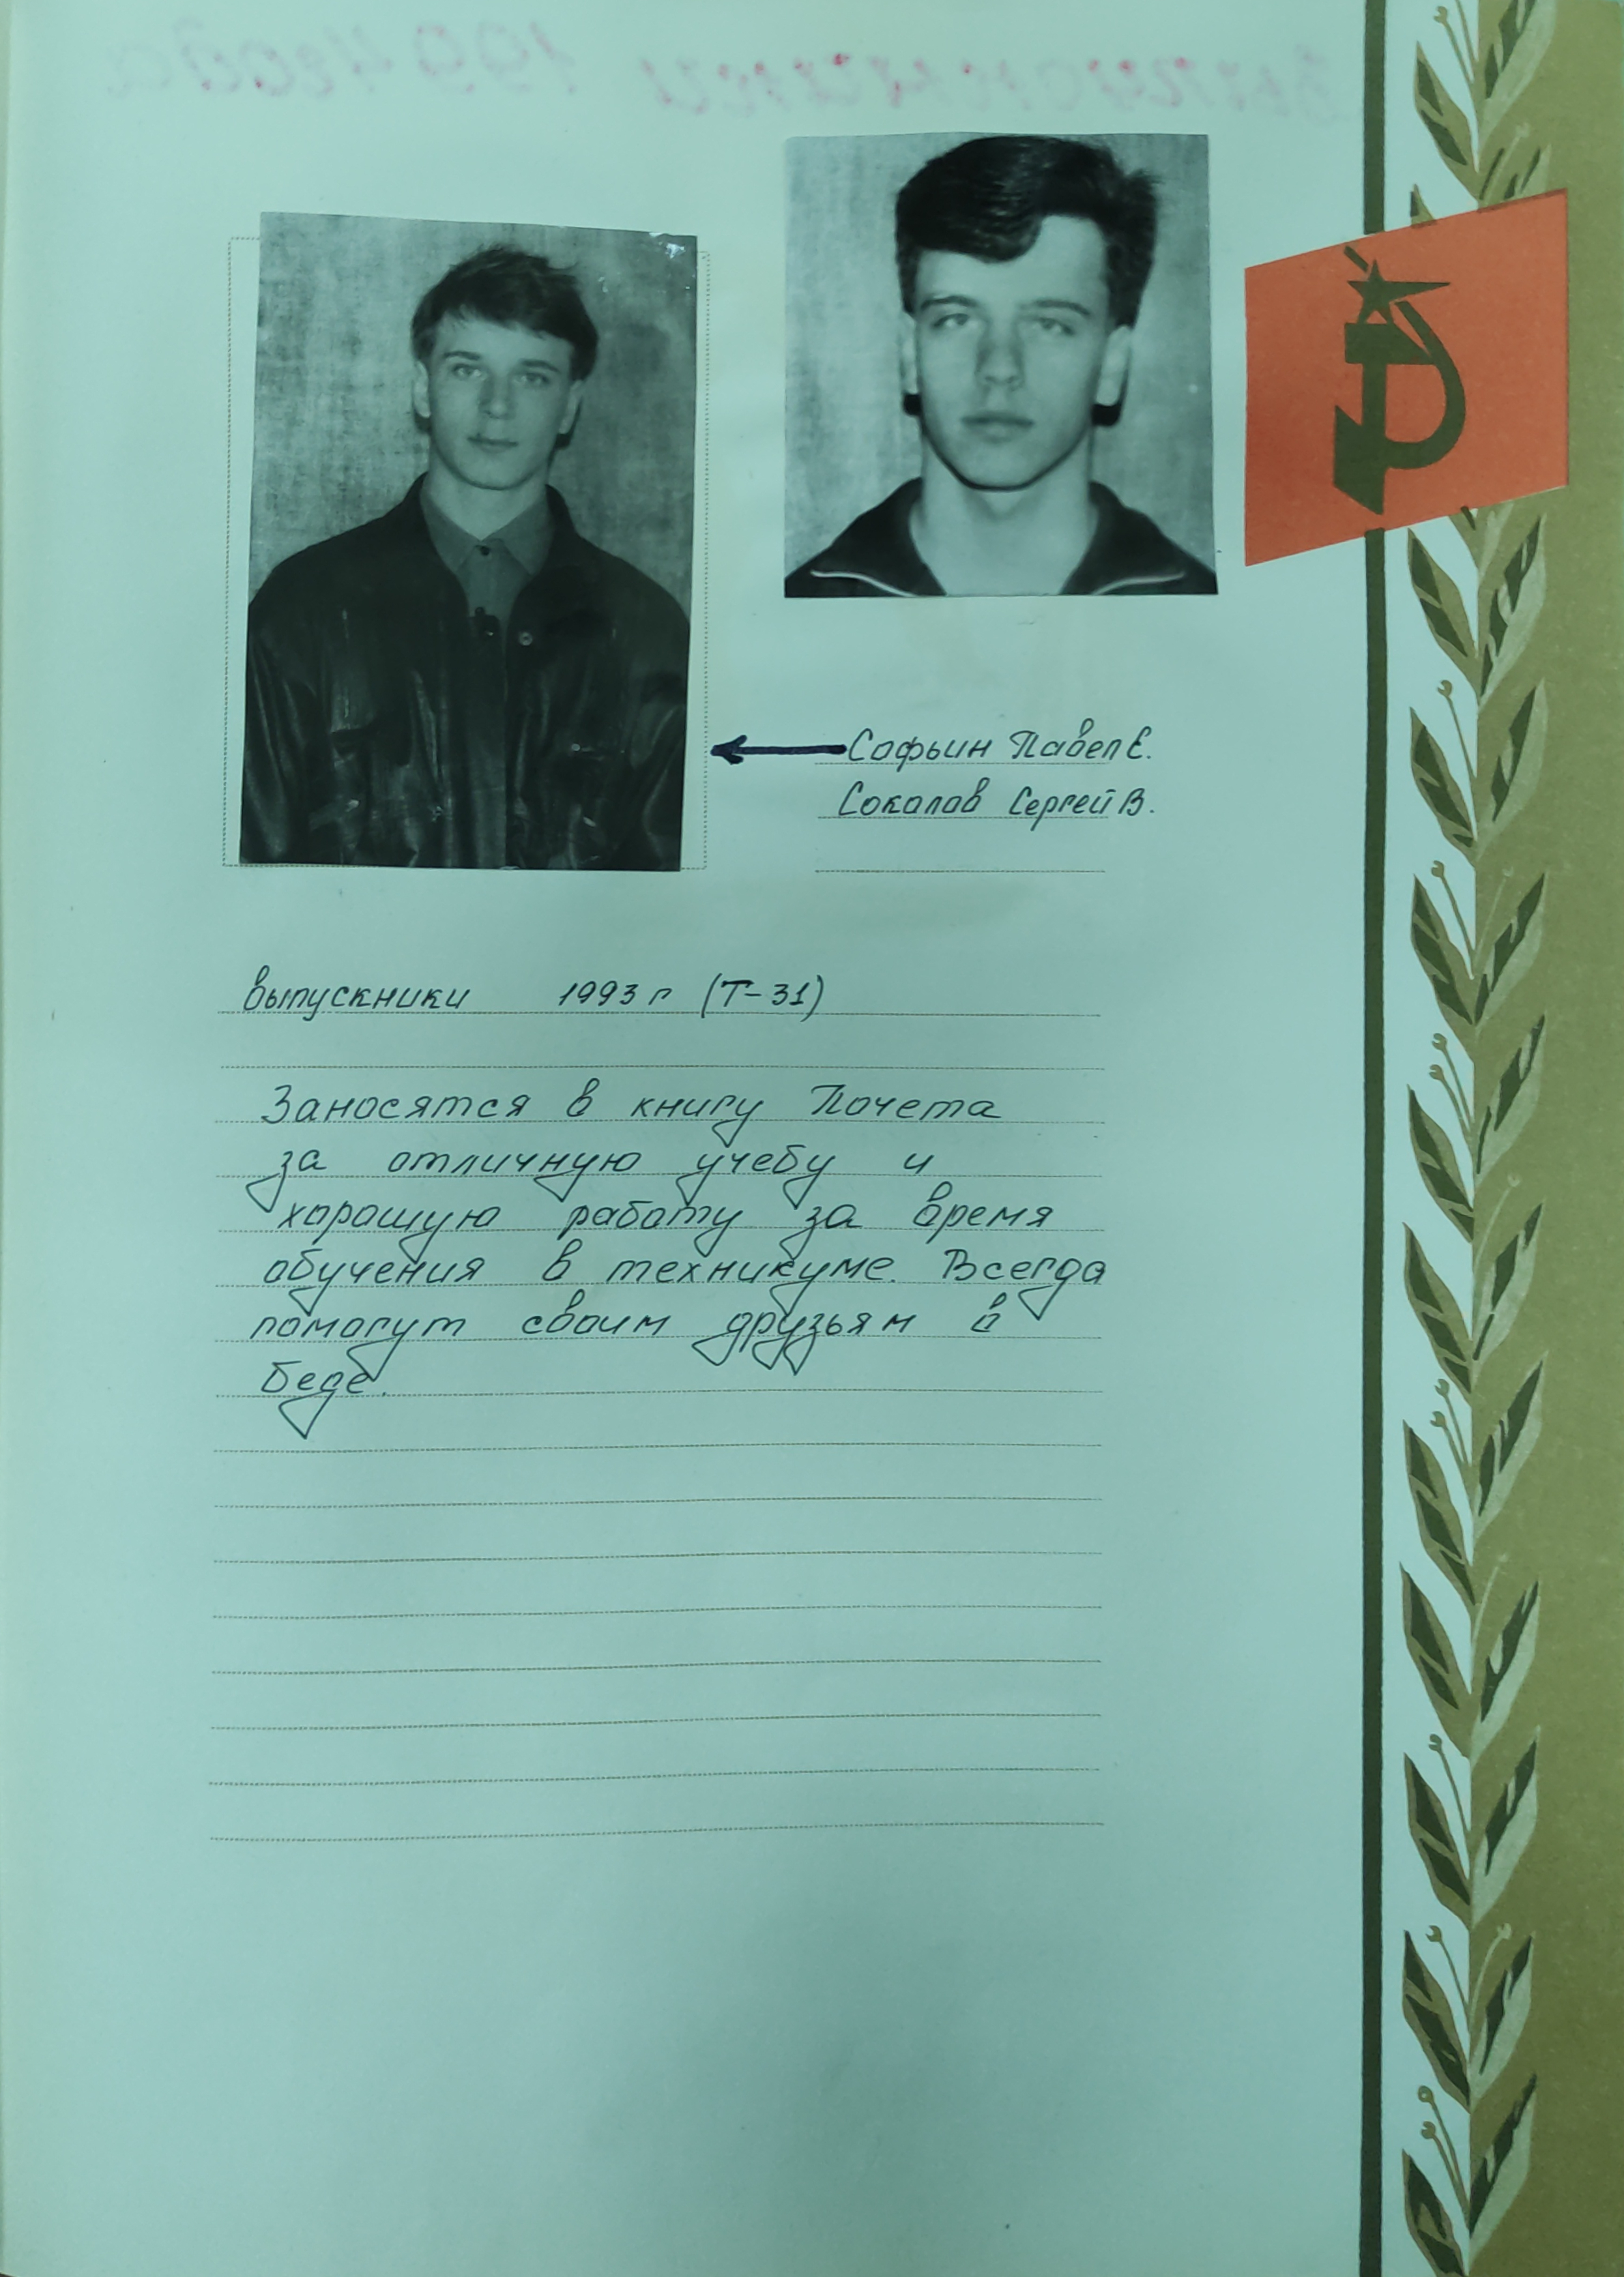 Софьин Павел Е.
Соколов Сергей В.
выпускники 1993 г (Т-31)
Заносятся в книгу Почета
за отличную учебу и
хорошую работу за время
обучения в техникуме. Всегда
помогут своим друзьям в
беде.